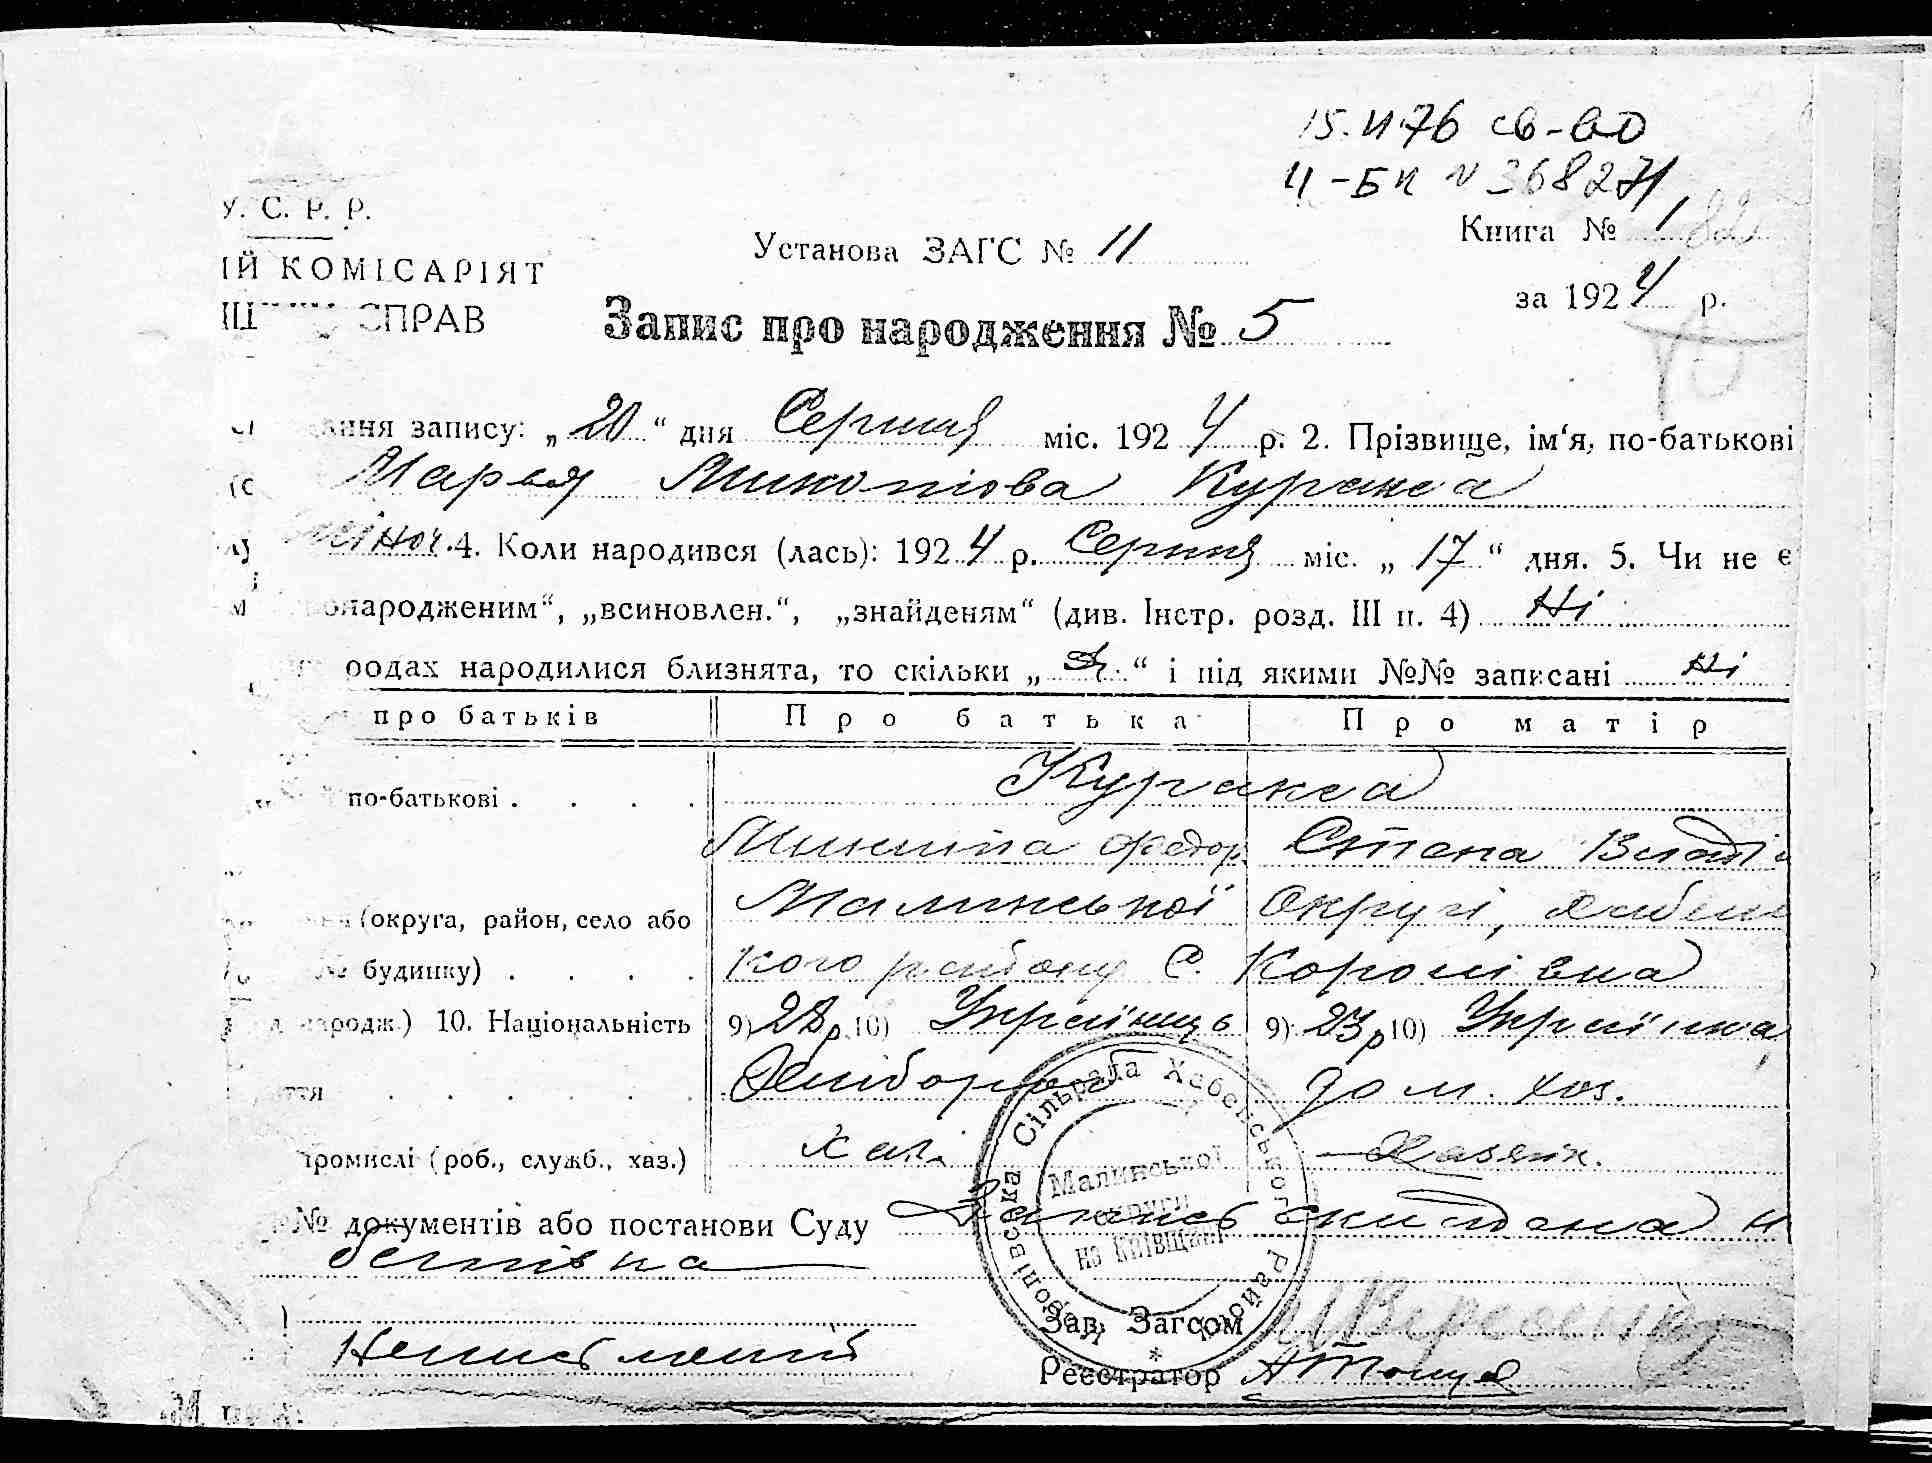 15.II 76 св-во
II-БК № 368271
У. С. Р. Р.
ІЙ КОМІСАРІЯТ
СПРАВ
Установа ЗАГС № 11
Книга № 1
за 1924 р.
Запис про народження № 5
ння запису: „20“ дня Серпня міс. 1924 р. 2. Прізвище, ім‘я, по-батькові
Марья Миколіова Куракса
жіноч. 4. Коли народився (лась): 1924 р. Серпня міс. „17“ дня. 5. Чи не є
онародженим“, „всиновлен.“, „знайденям“ (див. Інстр. розд. III п. 4) Ні
родах народилися близнята, то скільки „ “ і під якими №№ записані Ні
про батьків Про батька Про матір
Куракса
по-батькові . . . .
Микита Федор Степа
(округа, район, село або Малинської округи, Хабенс
№ будинку) . . . . кого району С. Королівка
народж.) 10. Національність 9) 28р 10) Українець 9) 23р 10) Українка
ття . . . . . . Хлібороб дом. хоз.
промислі (роб., служб., хаз.) Хаз. Хазяйк.
№ документів або постанови Суду Запись складена
Зав. Загсом
Неписьменний
Реєстратор
Сільрада Хабенського Району
Малинської
округи
на Київщині
*